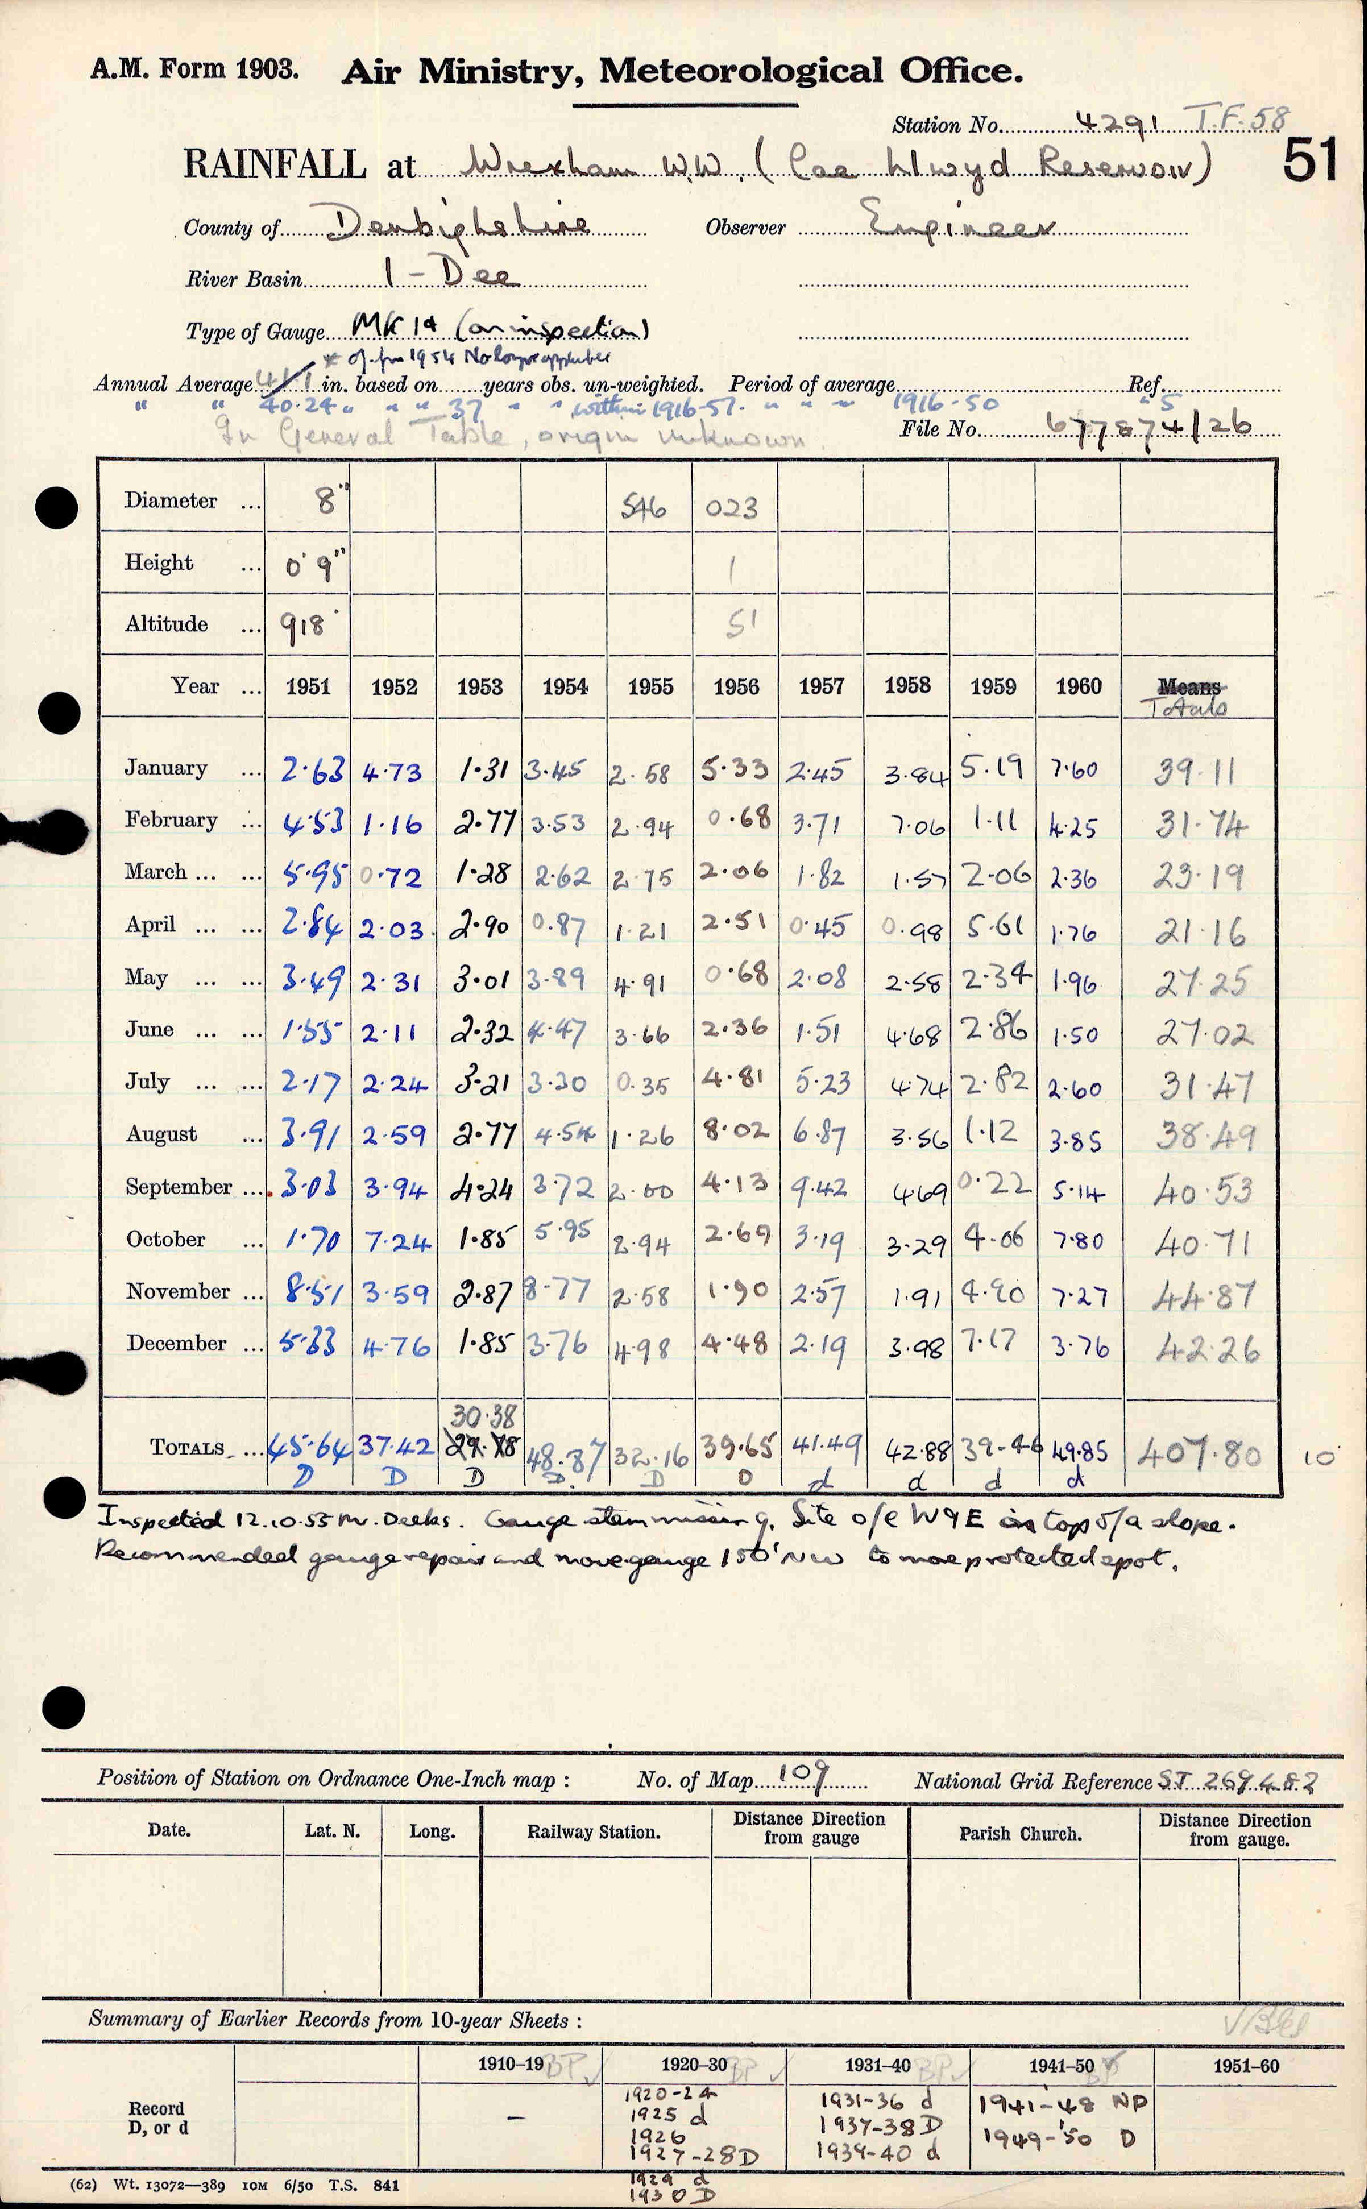 A.M. Form 1903. Air Ministry, Meteorological Office.
Station No. 4291 T.F. 58
51
RAINFALL at Wrexham W.W. (Cae Llwyd Reservoir)
County of Denbighshire Observer Engineer
River Basin 1 - Dee
Type of Gauge MK 1A (on inspection)
Annual Average 41.1 in. based on years obs. un-weighted. Period of average Ref.
" " 40.24 " " " 37 " " within 1916-51. " " " 1916-50 "S
In General Table, origin unknown. File No. 677874/26
Diameter ... 8" 546 023
Height ... 0' 9" 1
Altitude ... 918' 51
Year ... 1951 1952 1953 1954 1955 1956 1957 1958 1959 1960 Means
Totals
January ... 2.63 4.73 1.31 3.45 2.58 5.33 2.45 3.84 5.19 7.60 39.11
February ... 4.53 1.16 2.77 3.53 2.94 0.68 3.71 7.06 1.11 4.25 31.74
March ... ... 5.95 0.72 1.28 2.62 2.75 2.06 1.82 1.57 2.06 2.36 23.19
April ... ... 2.84 2.03 2.90 0.87 1.21 2.51 0.45 0.98 5.61 1.76 21.16
May ... ... 3.49 2.31 3.01 3.89 4.91 0.68 2.08 2.58 2.34 1.96 27.25
June ... ... 1.55 2.11 2.32 4.47 3.66 2.36 1.51 4.68 2.86 1.50 27.02
July ... ... 2.17 2.24 3.21 3.30 0.35 4.81 5.23 4.74 2.82 2.60 31.47
August ... 3.91 2.59 2.77 4.54 1.26 8.02 6.87 3.56 1.12 3.85 38.49
September ... 3.03 3.94 4.24 3.72 2.00 4.13 9.42 4.69 0.22 5.14 40.53
October ... 1.70 7.24 1.85 5.95 2.94 2.69 3.19 3.29 4.06 7.80 40.71
November ... 8.51 3.59 2.87 8.77 2.58 1.90 2.57 1.91 4.90 7.27 44.87
December ... 5.33 4.76 1.85 3.76 4.98 4.48 2.19 3.98 7.17 3.76 42.26
30.38
TOTALS ... 45.64 37.42 29.78 48.87 32.16 39.65 41.49 42.88 39.46 49.85 407.80 10
D D D D. D D d d d d
Inspected 12.10.55 Mr. Deeks. Gauge stem missing. Site o/e W & E on top of a slope.
Recommended gauge repair and move gauge 150' NW to more protected spot.
Position of Station on Ordnance One-Inch map : No. of Map 109 National Grid Reference SJ 269 482
Date. Lat. N. Long. Railway Station. Distance Direction from gauge Parish Church. Distance Direction from gauge.
Summary of Earlier Records from 10-year Sheets :
1910-19 BP ✓ 1920-30 BP ✓ 1931-40 BP ✓ 1941-50 BP 1951-60
Record
D, or d
–
1920-24
1925 d
1926
1927-28 D
1929 d
1930 D
1931-36 d
1937-38 D
1939-40 d
1941-48 NP
1949-50 D
(62) Wt. 13072—389 10M 6/50 T.S. 841